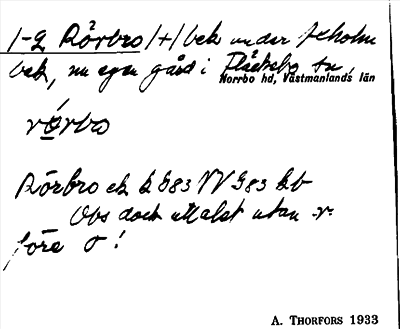 1-2 Rörbro /+/ bek under Ekholm
bek, nu egen gård i Fläckebo sn,
Norrbo hd, Västmanlands län
rǿrbo
Rörbro ek b b83 VV G83 kb
Obs dock uttalet utan -r-
före o!
A. THORFORS 1933